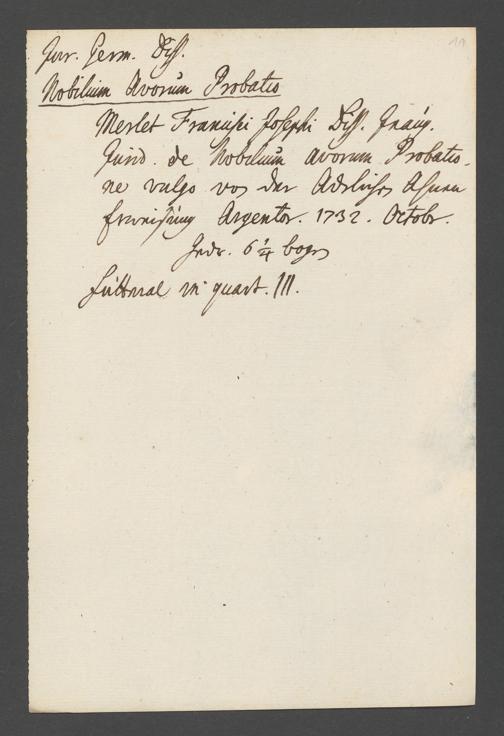 Jur. Germ. Diss.
Nobilium Avorum Probatio
Merlet Francisci Josephi Diss. Inaug.
Jurid. de Nobilium avorum Probatio-
ne vulgo von der Adelichen Ahnen
Erweisung Argentor. 1732. Octobr.
6 1/4 bogen
Futteral in quart. III.